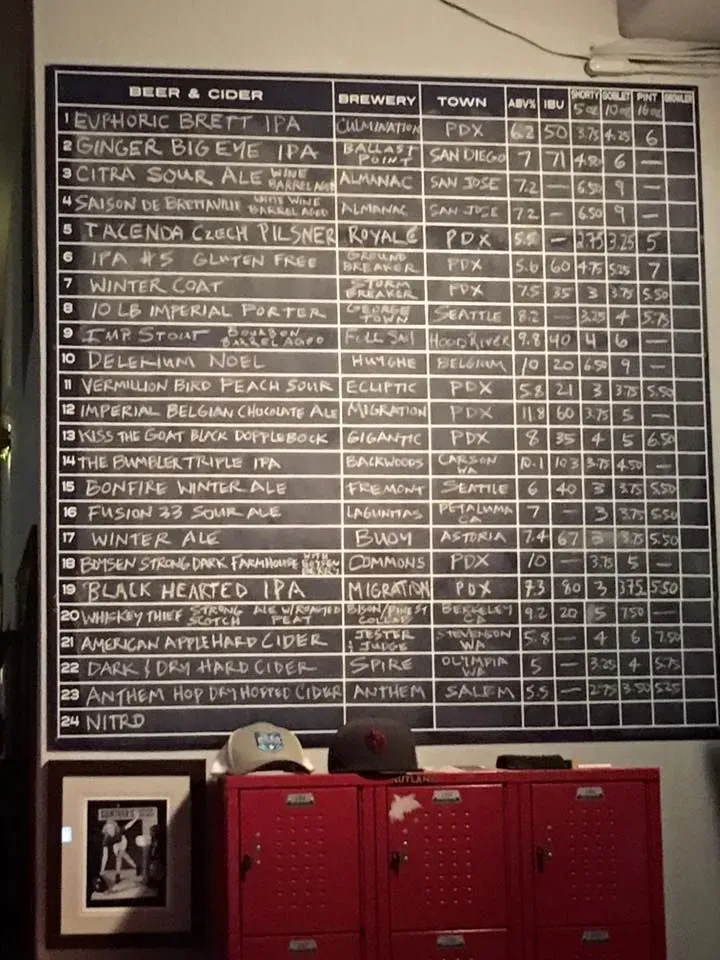 BEER & CIDER BREWERY TOWN ABV% IBU SHORTY 5 oz GOBLET 10 oz PINT 16 oz GROWLER
1 EUPHORIC BRETT IPA CULMINATION PDX 6.2 50 3.75 4.25 6
2 GINGER BIG EYE IPA BALLAST POINT SAN DIEGO 7 71 4.50 6 —
3 CITRA SOUR ALE WINE BARREL AGED ALMANAC SAN JOSE 7.2 — 6.50 9 —
4 SAISON DE BRETTAVILLE WHITE WINE BARREL AGED ALMANAC SAN JOSE 7.2 — 6.50 9 —
5 TACENDA CZECH PILSNER ROYALE PDX 5.5 — 2.75 3.25 5
6 IPA #5 GLUTEN FREE GROUND BREAKER PDX 5.6 60 4.75 5.25 7
7 WINTER COAT STORM BREAKER PDX 7.5 35 3 3.75 5.50
8 10 LB IMPERIAL PORTER GEORGE TOWN SEATTLE 8.2 — 3.25 4 5.75
9 IMP STOUT BOURBON BARREL AGED FULL SAIL HOOD RIVER 9.8 40 4 6 —
10 DELERIUM NOEL HUYGHE BELGIUM 10 20 6.50 9 —
11 VERMILLION BIRD PEACH SOUR ECLIPTIC PDX 5.8 21 3 3.75 5.50
12 IMPERIAL BELGIAN CHOCOLATE ALE MIGRATION PDX 11.8 60 3.75 5 —
13 KISS THE GOAT BLACK DOPPLEBOCK GIGANTIC PDX 8 35 4 5 6.50
14 THE BUMBLER TRIPLE IPA BACKWOODS CARSON WA 10.1 103 3.75 4.50 —
15 BONFIRE WINTER ALE FREMONT SEATTLE 6 40 3 3.75 5.50
16 FUSION 33 SOUR ALE LAGUNITAS PETALUMA CA 7 — 3 3.75 5.50
17 WINTER ALE BUOY ASTORIA 7.4 67 3 3.75 5.50
18 BOYSEN STRONG DARK FARMHOUSE WITH BOYSEN BERRY COMMONS PDX 10 — 3.75 5 —
19 BLACK HEARTED IPA MIGRATION PDX 7.3 80 3 3.75 5.50
20 WHISKEY THIEF STRONG SCOTCH ALE W/ROASTED PEAT BISON COLLAB BERKELEY CA 9.2 20 5 7.50 —
21 AMERICAN APPLE HARD CIDER JESTER & JUDGE STEVENSON WA 5.8 — 4 6 7.50
22 DARK & DRY HARD CIDER SPIRE OLYMPIA WA 5 — 3.25 4 5.75
23 ANTHEM HOP DRY HOPPED CIDER ANTHEM SALEM 5.5 — 2.75 3.50 5.25
24 NITRO